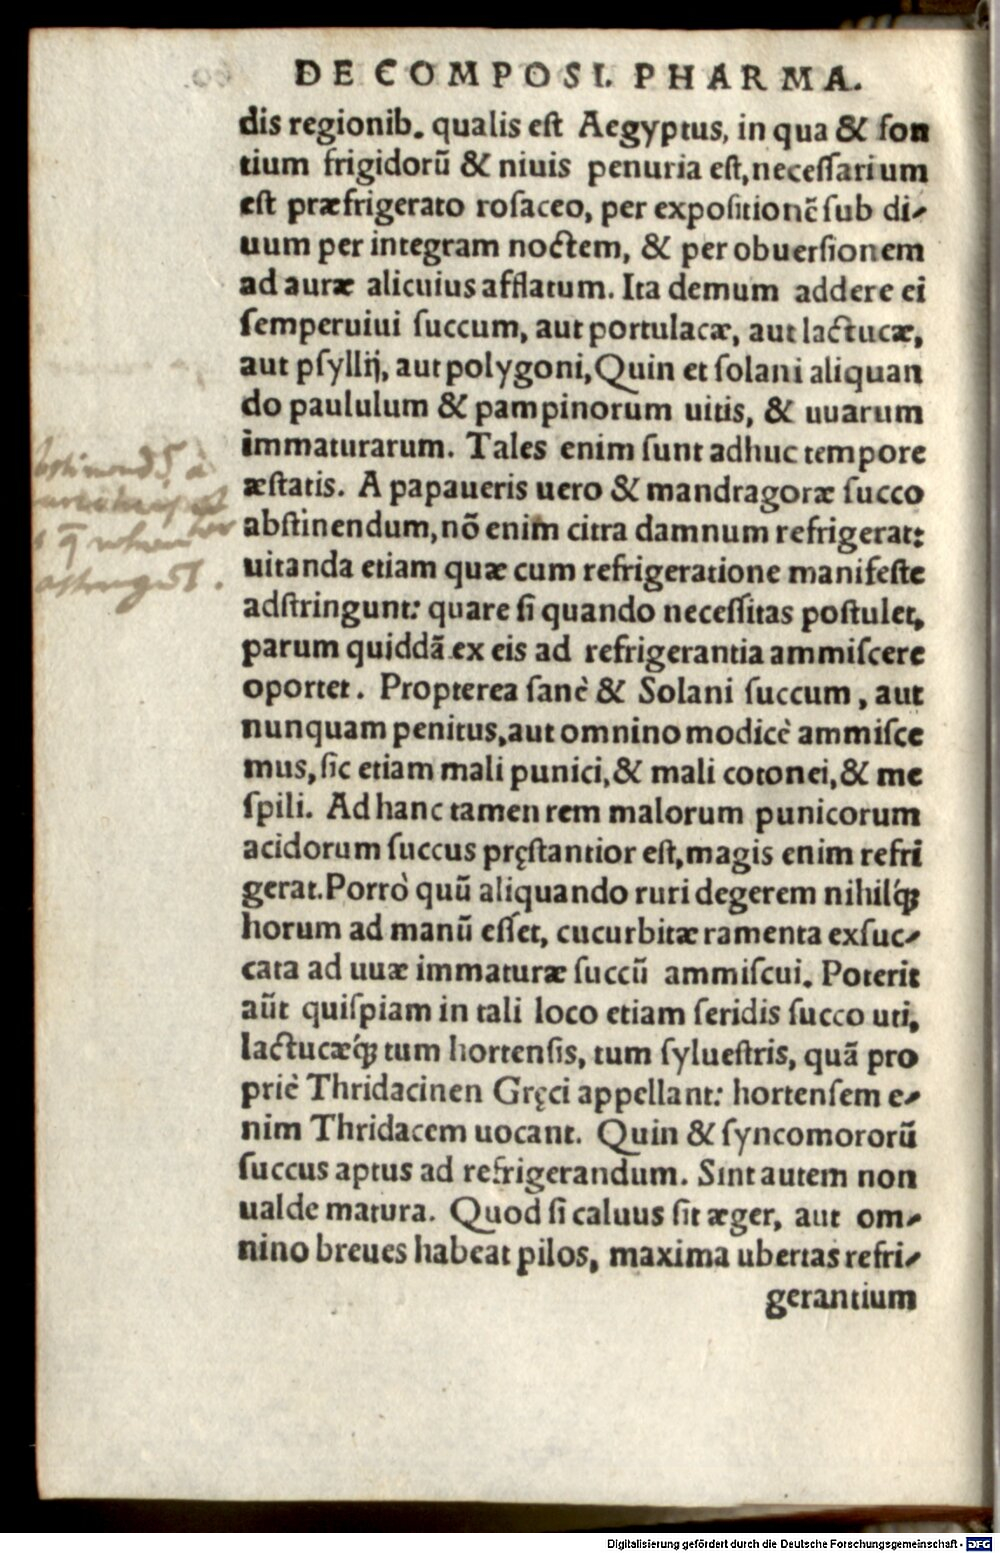 DE COMPOSI. PHARMA.
dis regionib. qualis eſt Aegyptus, in qua & fon
tium frigidorũ & niuis penuria eſt, neceſſarium
eſt præfrigerato roſaceo, per expoſitionẽ ſub di-
uum per integram noctem, & per obuerſionem
ad auræ alicuius afflatum. Ita demum addere ei
ſemperuiui ſuccum, aut portulacæ, aut lactucæ,
aut pſyllij, aut polygoni, Quin et ſolani aliquan
do paululum & pampinorum uitis, & uuarum
immaturarum. Tales enim ſunt adhuc tempore
æſtatis. A papaueris uero & mandragoræ ſucco
abſtinendum, nõ enim citra damnum refrigerat:
uitanda etiam quæ cum refrigeratione manifeſte
adſtringunt: quare ſi quando neceſſitas poſtulet,
parum quiddã ex eis ad refrigerantia ammiſcere
oportet. Propterea ſanè & Solani ſuccum, aut
nunquam penitus, aut omnino modicè ammiſce
mus, ſic etiam mali punici, & mali cotonei, & me
ſpili. Ad hanc tamen rem malorum punicorum
acidorum ſuccus pręſtantior eſt, magis enim refri
gerat. Porrò quũ aliquando ruri degerem nihilq́ꝫ
horum ad manũ eſſet, cucurbitæ ramenta exſuc-
cata ad uuæ immaturæ ſuccũ ammiſcui. Poterit
aũt quiſpiam in tali loco etiam ſeridis ſucco uti,
lactucæq́ꝫ tum hortenſis, tum ſylueſtris, quã pro
priè Thridacinen Gręci appellant: hortenſem e-
nim Thridacem uocant. Quin & ſyncomororũ
ſuccus aptus ad refrigerandum. Sint autem non
ualde matura. Quod ſi caluus ſit æger, aut om-
nino breues habeat pilos, maxima ubertas refri-
gerantium
Digitalisierung gefördert durch die Deutsche Forschungsgemeinschaft - DFG